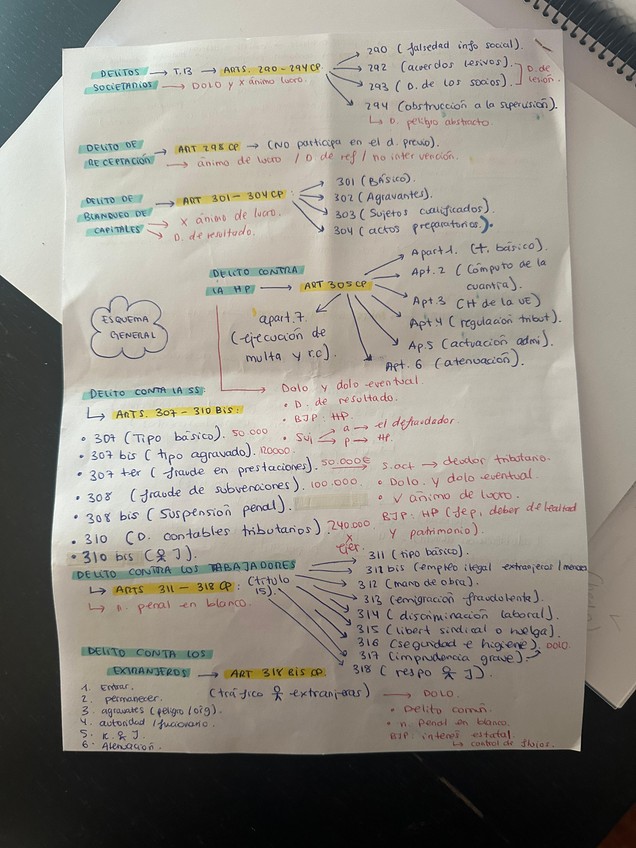 DELITOS SOCIETARIOS → T.13 → ARTS. 290 - 294 CP.
→ DOLO y x ánimo lucro.
290 (falsedad info social).
292 (acuerdos lesivos).
293 (D. de los socios).
D. de lesión.
294 (obstrucción a la supervisión).
↳ D. peligro abstracto.
DELITO DE RECEPTACIÓN → ART 298 CP → (NO participa en el d. previo).
→ ánimo de lucro / D. de ref / no intervención.
DELITO DE BLANQUEO DE CAPITALES → ART 301 - 304 CP:
→ x ánimo de lucro.
→ D. de resultado.
301 (BÁSICO).
302 (Agravantes).
303 (Sujetos cualificados).
304 (actos preparatorios).
DELITO CONTRA LA HP → ART 305 CP
Apart 1. (t. básico).
Apt. 2 (cómputo de la cuantía).
Apt. 3 (H de la UE)
Apt 4 (regulación tribut).
Ap. 5 (actuación admi).
Apt. 6 (atenuación).
apart. 7. (-ejecución de multa y r.c).
ESQUEMA GENERAL
→ Dolo y dolo eventual.
• D. de resultado.
• BJP: HP.
• Suj a → el defraudador
p → HP.
DELITO CONTA LA SS:
↳ ARTS. 307 - 310 BIS:
• 307 (TIPO básico). 50.000
• 307 bis (tipo agravado). 120000.
• 307 ter (fraude en prestaciones). 50.000€ → s.act → deudor tributario.
• 308 (fraude de subvenciones). 100.000.
• 308 bis (suspensión penal).
• 310 (D. contables tributarios). 240.000 x ejer.
• 310 bis (J).
• Dolo y dolo eventual.
• V ánimo de lucro.
BJP: HP (fep, deber de lealtad y patrimonio).
DELITO CONTRA LOS TABAJADORES
↳ ARTS 311 - 318 CP: (título 15).
↳ D. penal en blanco.
311 (tipo básico).
311 bis (empleo ilegal extranjeros / menores
312 (mano de obra).
313 (emigración fraudolenta).
314 (discriminación laboral).
315 (libert sindical o huelga).
316 (seguridad e higiene). DOLO.
317 (imprudencia grave).
318 (respo J).
DELITO CONTA LOS EXTRANJEROS → ART 318 BIS CP.
(tráfico extranjeros) → DOLO.
1. Entrar.
2. permanecer.
3. agravantes (peligro / orig).
4. autoridad / funcionario.
5. J.
6. Atenuación.
• Delito común.
• n. penal en blanco.
BJP: interés estatal.
↳ control de flujos.